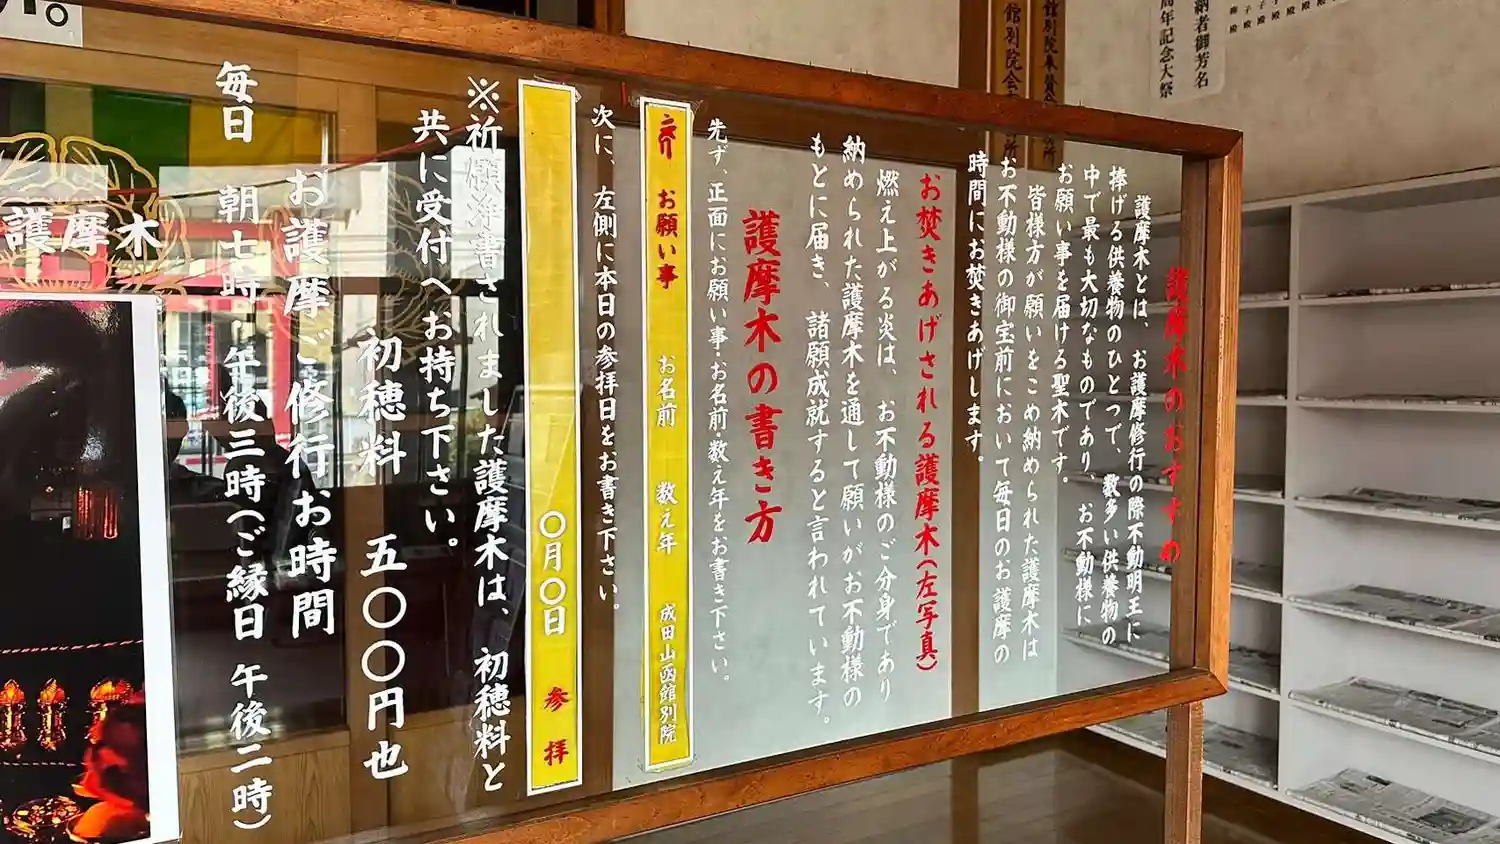 護摩木のおすすめ
護摩木とは、お護摩修行の際不動明王に
捧げる供養物のひとつで、数多い供養物の
中で最も大切なものであり、お不動様に
お願い事を届ける聖木です。
皆様方が願いをこめ納められた護摩木は
お不動様の御宝前において毎日のお護摩の
時間にお焚きあげします。
お焚きあげされる護摩木(左写真)
燃え上がる炎は、お不動様のご分身であり
納められた護摩木を通して願いがお不動様の
もとに届き、諸願成就すると言われています。
護摩木の書き方
先ず、正面にお願い事・お名前・数え年をお書き下さい。
お願い事 お名前 数え年 成田山函館別院
次に、左側に本日の参拝日をお書き下さい。
〇月〇日 参拝
※祈願浄書されました護摩木は、初穂料と
共に受付へお持ち下さい。
初穂料 五〇〇円也
お護摩ご修行お時間
毎日 朝七時・午後三時(ご縁日 午後二時)
護摩木
納者御芳名
周年記念大祭
館別院奉賛会
館別院会
所